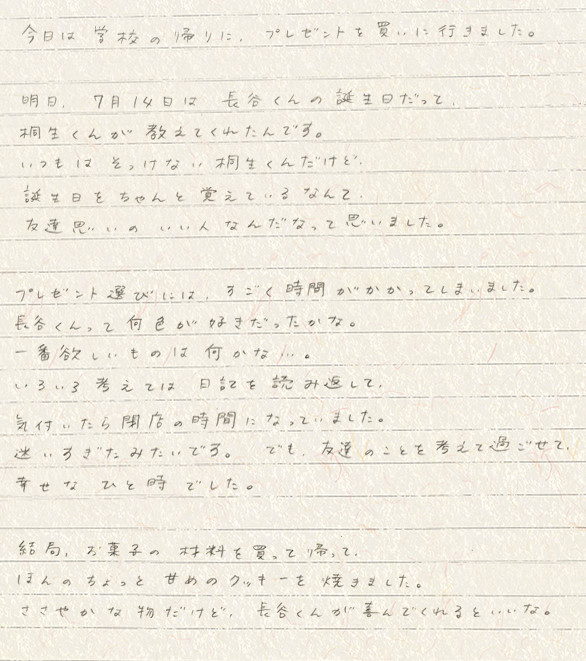 今日は学校の帰りに、プレゼントを買いに行きました。
明日、7月14日は長谷くんの誕生日だって、
桐生くんが教えてくれたんです。
いつもはそっけない桐生くんだけど、
誕生日をちゃんと覚えているなんて、
友達思いのいい人なんだなって思いました。
プレゼント選びには、すごく時間がかかってしまいました。
長谷くんって何色が好きだったかな。
一番欲しいものは何かな…。
いろいろ考えては日記を読み返して、
気付いたら閉店の時間になっていました。
迷いすぎたみたいです。でも、友達のことを考えて過ごせて、
幸せなひと時でした。
結局、お菓子の材料を買って帰って、
ほんのちょっと甘めのクッキーを焼きました。
ささやかな物だけど、長谷くんが喜んでくれるといいな。